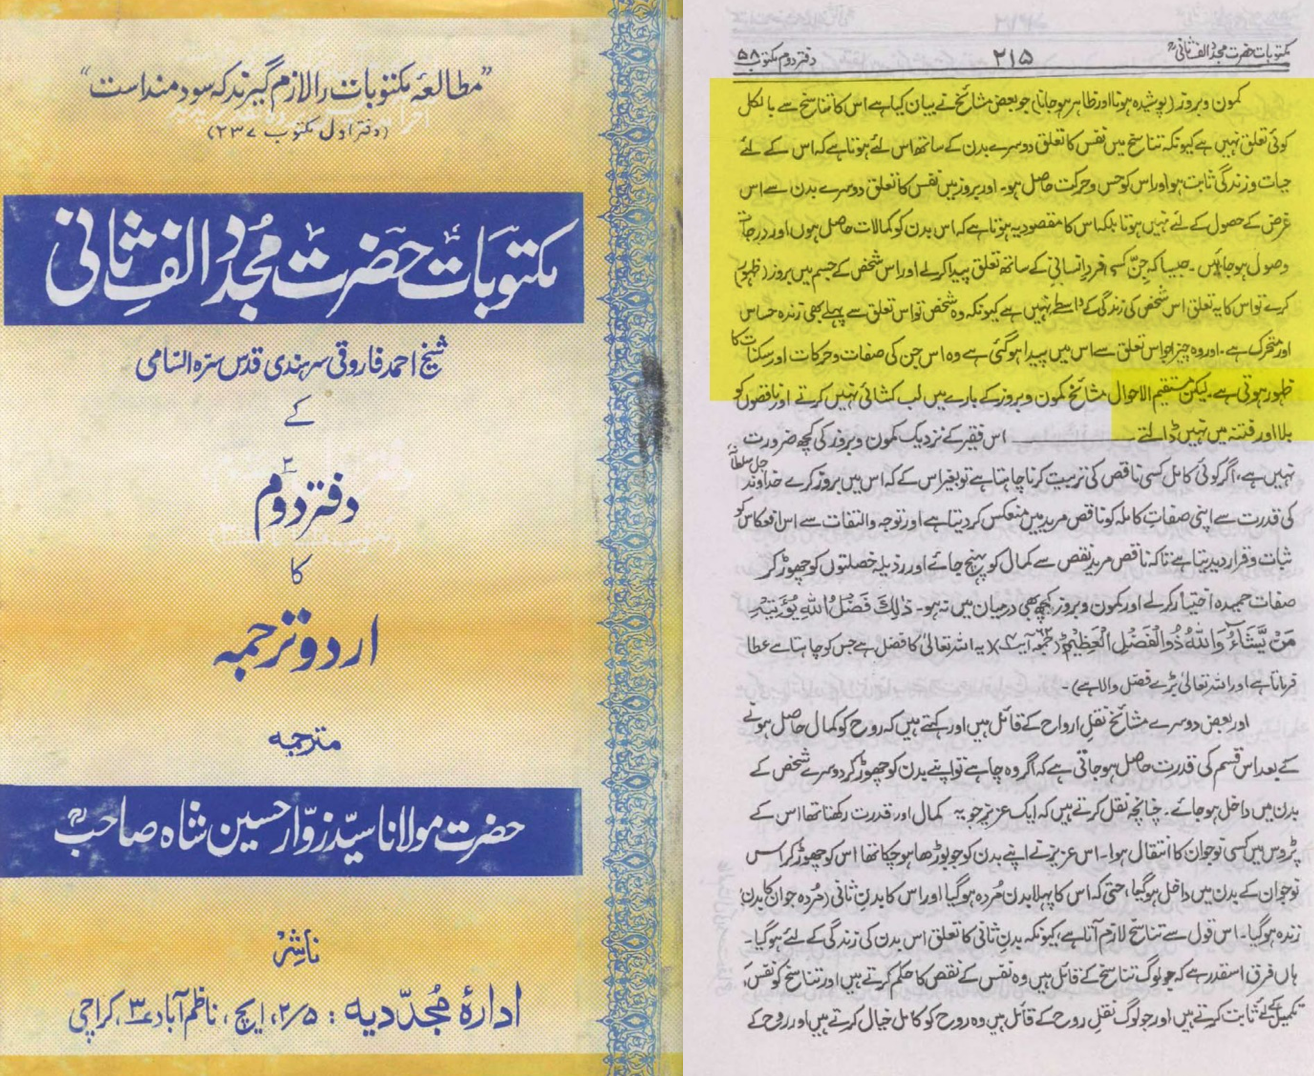 "مطالعۂ مکتوبات را لازم گیرند کہ سود مند است"
(دفتر اول مکتوب ۲۳۷)
مکتوبات حضرت مجدد الف ثانی
شیخ احمد فاروقی سرہندی قدس سرہ السامی
کے
دفتر دوم
کا
اردو ترجمہ
مترجمہ
حضرت مولانا سید زوار حسین شاہ صاحبؒ
ناشر
ادارۂ مجددیہ : ۲/۵، ایچ، ناظم آباد ۳، کراچی
مکتوبات حضرت مجدد الف ثانیؒ
۲۱۵
دفتر دوم مکتوب ۵۸
کمون و بروز (پوشیدہ ہونا اور ظاہر ہو جانا) جو بعض مشائخ نے بیان کیا ہے اس کا تناسخ سے بالکل
کوئی تعلق نہیں ہے کیونکہ تناسخ میں نفس کا تعلق دوسرے بدن کے ساتھ اس لئے ہوتا ہے کہ اس کے لئے
حیات و زندگی ثابت ہو اور اس کو حس و حرکت حاصل ہو۔ اور بروز میں نفس کا تعلق دوسرے بدن سے اس
غرض کے حصول کے لئے نہیں ہوتا بلکہ اس کا مقصود یہ ہوتا ہے کہ اس بدن کو کمالات حاصل ہوں اور درجات
وصول ہو جائیں۔ جیسا کہ جن کسی فرد انسانی کے ساتھ تعلق پیدا کرلے اور اس شخص کے جسم میں بروز (ظہور)
کرے تو اس کا یہ تعلق اس شخص کی زندگی کے واسطے نہیں ہے کیونکہ وہ شخص تو اس تعلق سے پہلے بھی زندہ حساس
اور متحرک ہے۔ اور وہ چیز جو اس تعلق سے اس میں پیدا ہو گئی ہے وہ اس جن کی صفات و حرکات اور سکنات کا
ظہور ہوتی ہے لیکن مستقیم الاحوال مشائخ کمون و بروز کے بارے میں لب کشائی نہیں کرتے اور ناقصوں کو
بلا اور فتنہ میں نہیں ڈالتے ـــــ اس فقیر کے نزدیک کمون و بروز کی کچھ ضرورت
نہیں ہے، اگر کوئی کامل کسی ناقص کی تربیت کرنا چاہتا ہے تو بغیر اس کے کہ اس میں بروز کرے خداوند جل سلطانہ
کی قدرت سے اپنی صفات کاملہ کو ناقص مرید میں منعکس کر دیتا ہے اور توجہ والتفات سے اس انعکاس کو
ثبات و قرار دیدیتا ہے تاکہ ناقص مرید نقص سے کمال کو پہنچ جائے اور رذیلہ خصلتوں کو چھوڑ کر
صفات حمیدہ اختیار کرلے اور کمون و بروز کچھ بھی درمیان میں نہ ہو۔ ذٰلِكَ فَضْلُ اللهِ يُؤْتِيْهِ
مَنْ يَّشَاءُ وَاللهُ ذُو الْفَضْلِ الْعَظِيْمِ (جمعہ آیت ۴) (یہ اللہ تعالیٰ کا فضل ہے جس کو چاہتا ہے عطا
فرماتا ہے اور اللہ تعالیٰ بڑے فضل والا ہے)۔
اور بعض دوسرے مشائخ نقل ارواح کے قائل ہیں اور کہتے ہیں کہ روح کو کمال حاصل ہونے
کے بعد اس قسم کی قدرت حاصل ہو جاتی ہے کہ اگر وہ چاہے تو اپنے بدن کو چھوڑ کر دوسرے شخص کے
بدن میں داخل ہو جائے۔ چنانچہ نقل کرتے ہیں کہ ایک عزیز جو یہ کمال اور قدرت رکھتا تھا اس کے
پڑوس میں کسی نوجوان کا انتقال ہوا۔ اس عزیز نے اپنے بدن کو جو بوڑھا ہو چکا تھا اس کو چھوڑ کر اس
نوجوان کے بدن میں داخل ہو گیا، حتی کہ اس کا پہلا بدن مُردہ ہو گیا اور اس کا بدن ثانی (مُردہ جوان کا بدن)
زندہ ہو گیا۔ اس قول سے تناسخ لازم آتا ہے، کیونکہ بدن ثانی کا تعلق اس بدن کی زندگی کے لئے ہو گیا۔
ہاں فرق اسقدر ہے کہ جو لوگ تناسخ کے قائل ہیں وہ نفس کے نقص کا حکم کرتے ہیں اور تناسخ کو نفس کی
تکمیل کے لئے ثابت کرتے ہیں اور جو لوگ نقل روح کے قائل ہیں وہ روح کو کامل خیال کرتے ہیں اور روح کے